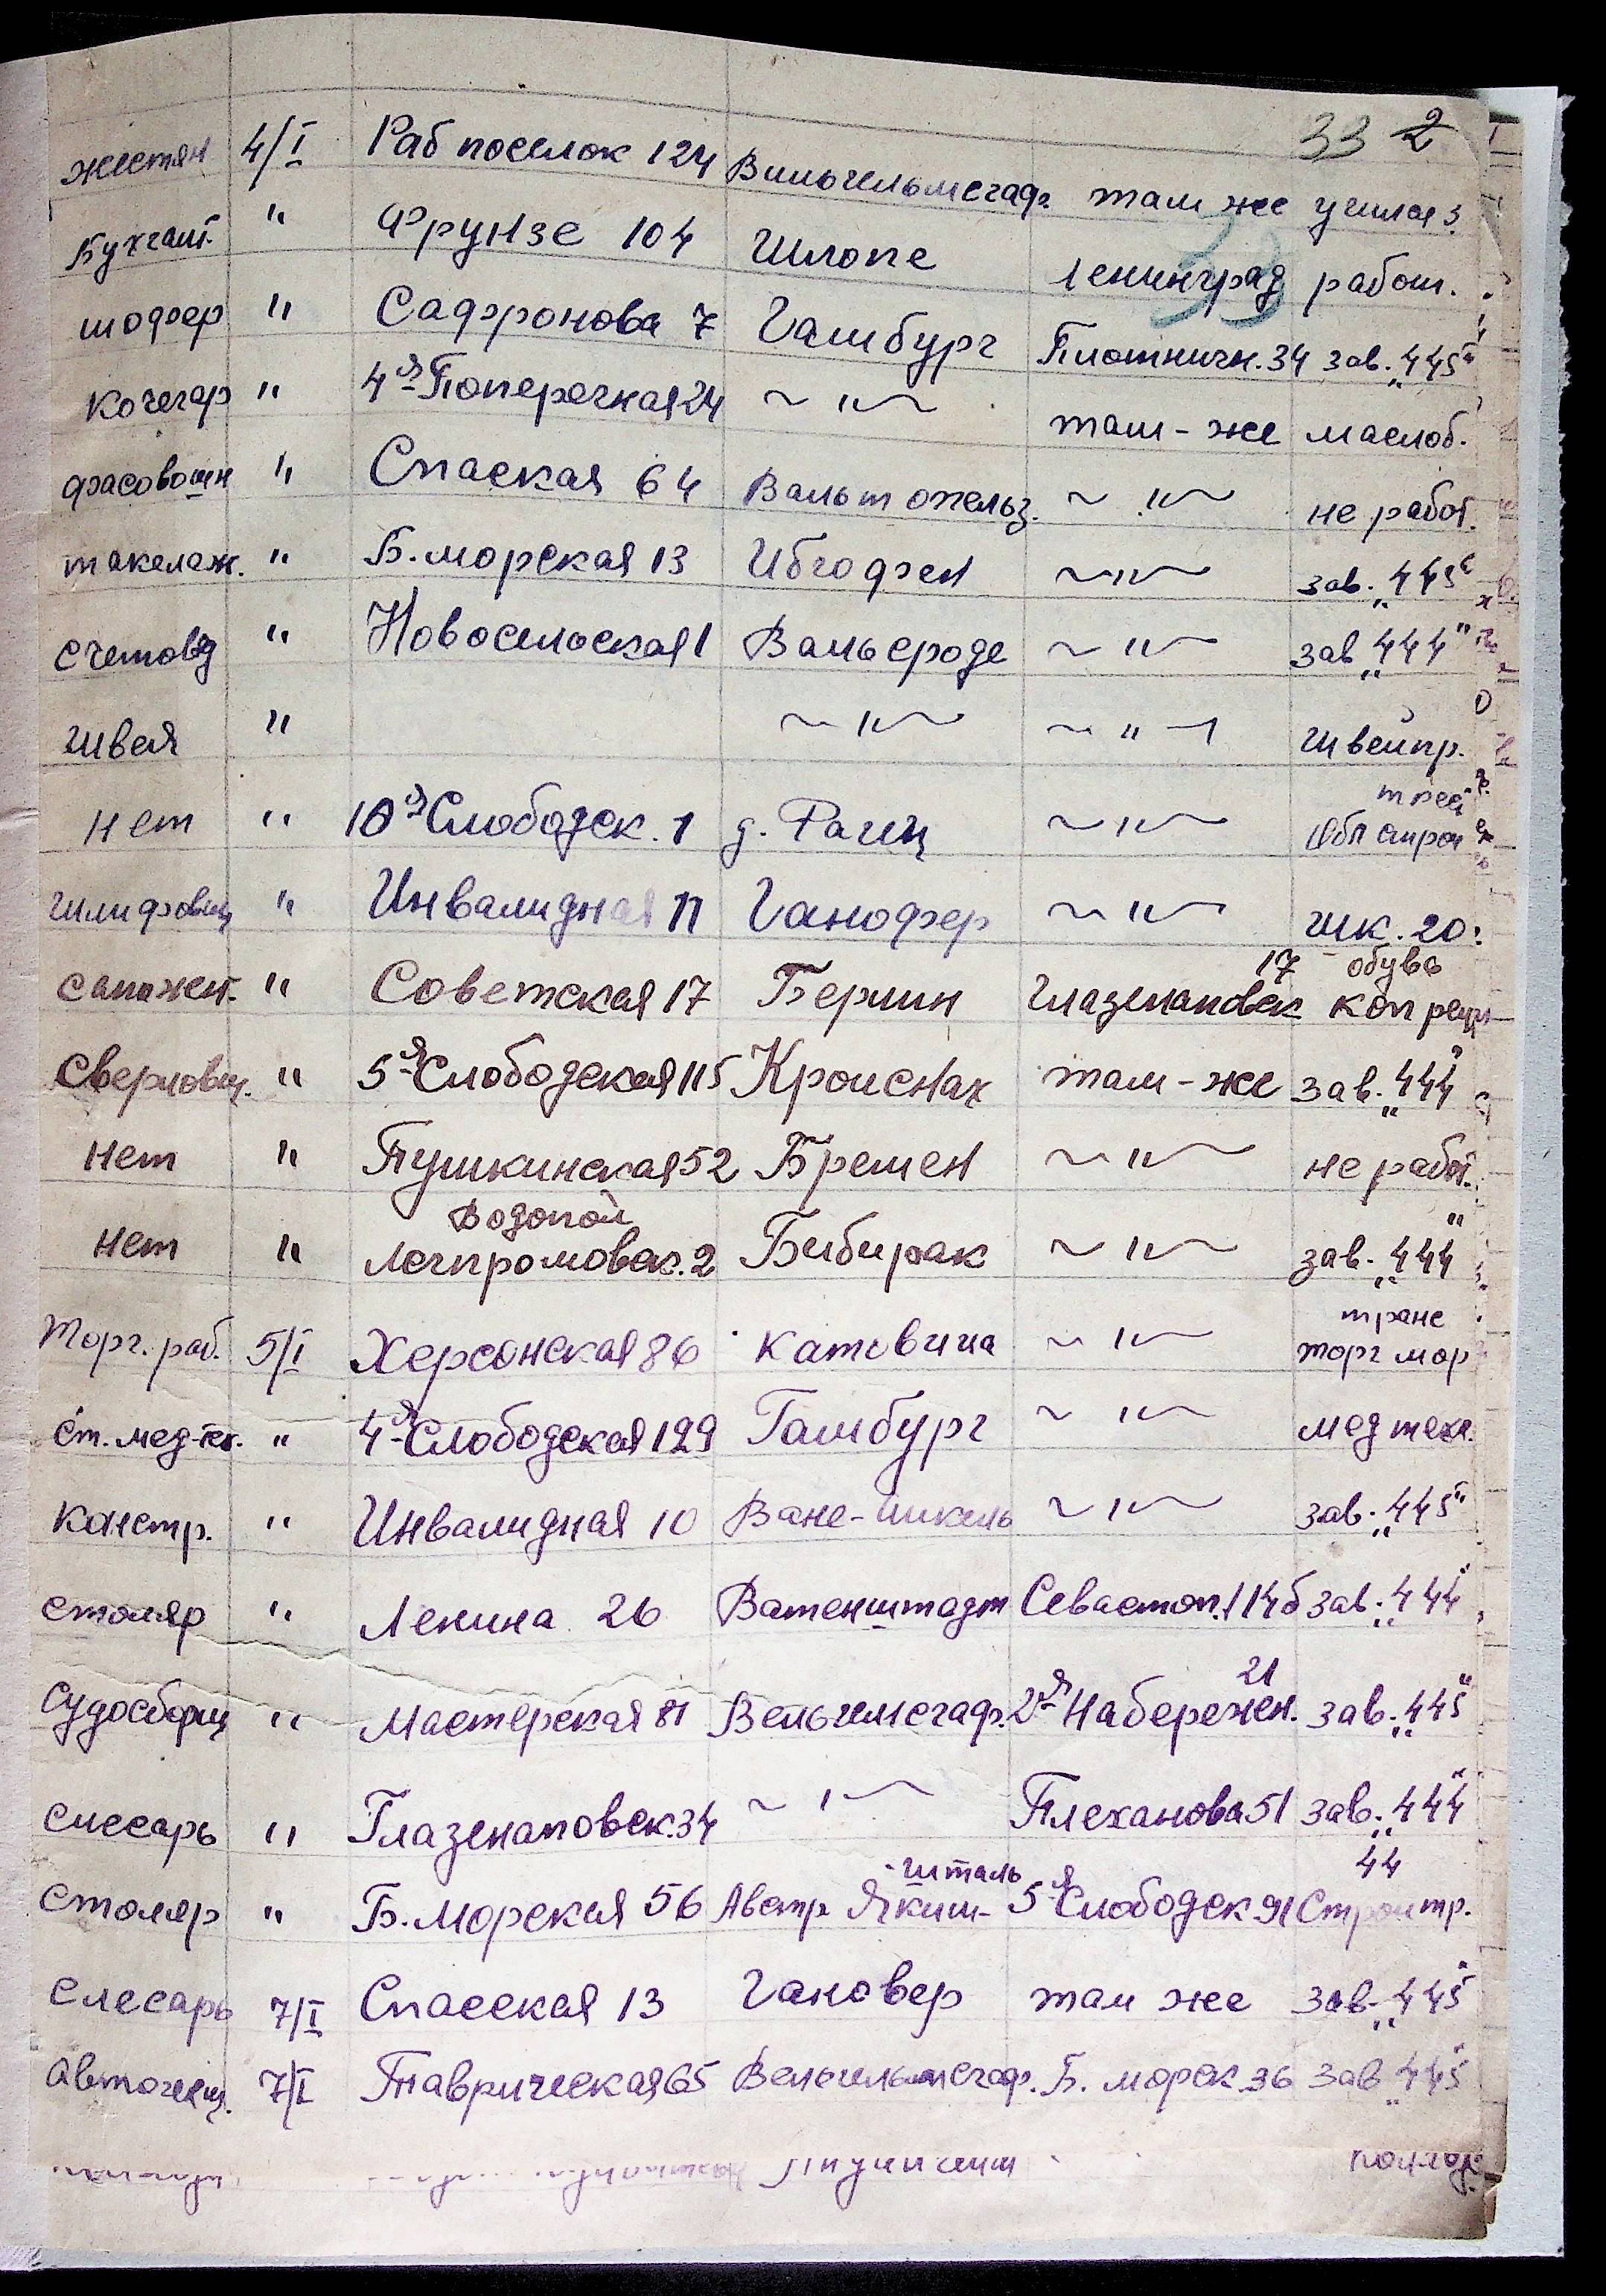 33 2
жестян 4/I Раб поселок 124 Вильгельмсгаф. там же училс
Бухгалт. " Фрунзе 104 Шлопе Ленинград работ.
33
шофер " Сафронова 7 Гамбург Плотничн. 34 зав. „445"
кочегар " 4я Поперечная 24 ~"~ там-же маслоб.
фасовощн " Спаская 64 Вальт ожельз. ~"~ не работ.
такелаж. " Б. морская 13 Ибгофен ~"~ зав. „445"
счетовд " Новосельская 1 Вальсроде ~"~ зав „444"
швея " ~"~ ~"~ Швейпр.
трест
нет " 10я Слободск. 1 д. Рагиц ~"~ Обл строй
шлифовщ " Инвалидная 11 Ганофер ~"~ шк. 20
17 обувь
сапожн. " Советская 17 Берлин Глазенаповск коп ремн
Сверловщ. " 5я Слободская 115 Кройснах там-же зав. „444"
нет " Пушкинская 52 Бремен ~"~ не работ.
Водопой
нет " Легпромовск. 2 Бибирак ~"~ зав. „444"
транс
Торг. раб. 5/I Херсонская 86 Катовица ~"~ торг мор
ст. мед-тех. " 4я Слободская 129 Гамбург ~"~ мед техн.
Констр. " Инвалидная 10 Ване-Никель ~"~ зав. „445"
столяр " Ленина 26 Ватенштадт Севастоп. 114б зав. „444"
21
Судосборщ " Мастерская 81 Вельгимсгаф. 2я Набережен. зав. „445"
слесарь " Глазенаповск. 34 ~"~ Плеханова 51 зав. „444"
-шталь 44
столяр " Б. Морская 56 Австр Якиш- 5я Слободск 91 Строитр.
слесарь 7/I Спасская 13 Гановер там же зав. „445"
Автогещ. 7/I Таврическая 65 Вельгельмсгаф. Б. морск 36 Зав „445"